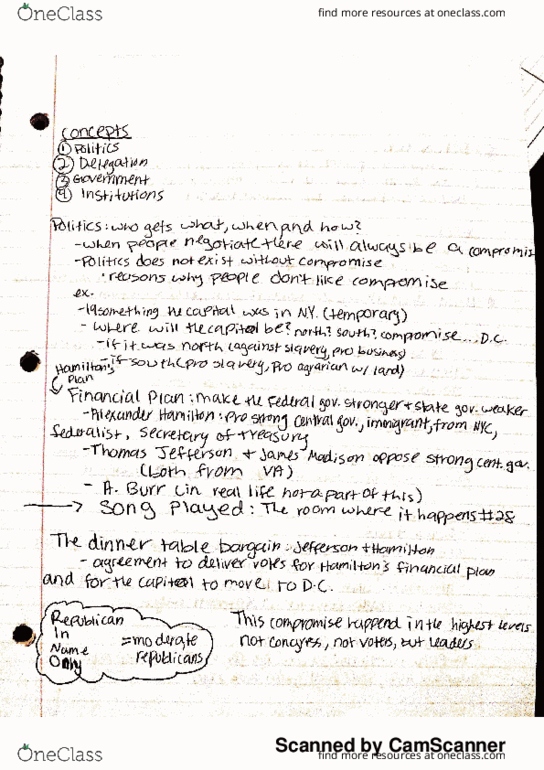 OneClass
find more resources at oneclass.com
Concepts
① Politics
② Delegation
③ Government
④ Institutions
Politics: who gets what, when and how?
- when people negotiate there will always be a compromis
- Politics does not exist without compromise
• reasons why people don't like compromise
ex.
- 19something the capital was in N.Y. (temporary)
- where will the capital be? north? south? compromise... D.C.
- if it was north (against slavery, pro business)
- if south (pro slavery, Pro agrarian w/ land)
Hamilton's
Plan
Financial Plan: make the federal gov. stronger + state gov. weaker
- Alexander Hamilton: Pro strong central gov., immigrant, from NYC,
federalist, secretary of treasury
- Thomas Jefferson + James Madison oppose strong cent. gov.
(both from VA)
- A. Burr (in real life not a part of this)
Song Played: The room where it happens #28
The dinner table bargain: Jefferson + Hamilton
- agreement to deliver votes for Hamilton's financial plan
and for the capital to move to D.C.
Republican
In
Name
Only
= moderate
republicans
This compromise happend in the highest levels
not congress, not voters, but leaders
Scanned by CamScanner
OneClass
find more resources at oneclass.com